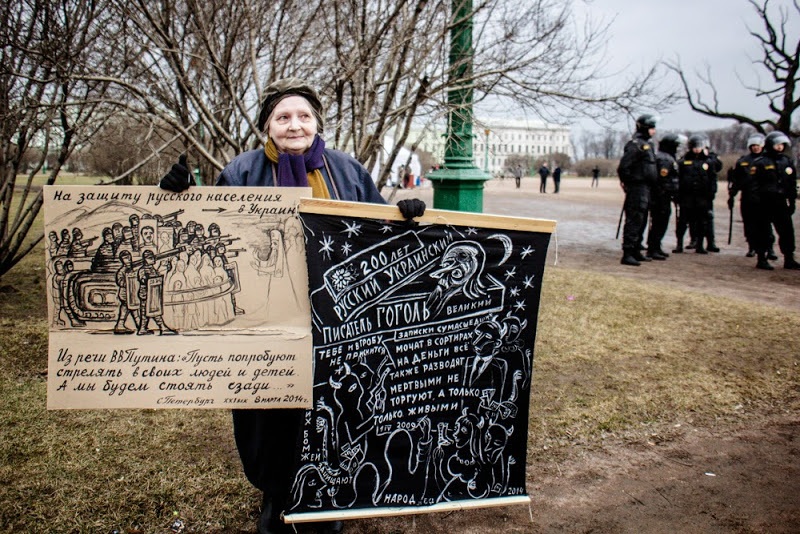 На защиту русского населения
в Украине
Из речи ВВПутина: «Пусть попробуют
стрелять в своих людей и детей.
А мы будем стоять сзади...»
С Петербург XXI век 8 марта 2014 г.
200 ЛЕТ
РУССКИЙ УКРАИНСКИЙ
ПИСАТЕЛЬ ГОГОЛЬ ВЕЛИКИЙ
ЗАПИСКИ СУМАСШЕДШ
ТЕБЕ И В ГРОБУ
НЕ ПРИСНИТСЯ
МОЧАТ В СОРТИРАХ
НА ДЕНЬГИ ВСЁ
ТАКЖЕ РАЗВОДЯТ
МЕРТВЫМИ НЕ
ТОРГУЮТ, А ТОЛЬКО
ТОЛЬКО ЖИВЫМИ
2009
БОМЖЕЙ
ЗАЩИЩАЮТ
НАРОД
2014